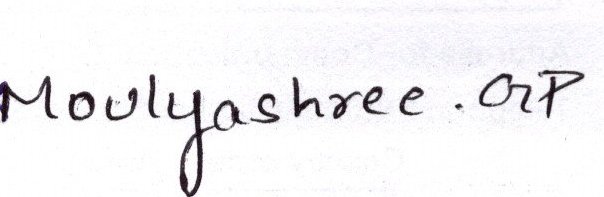 Moulyashree. GP